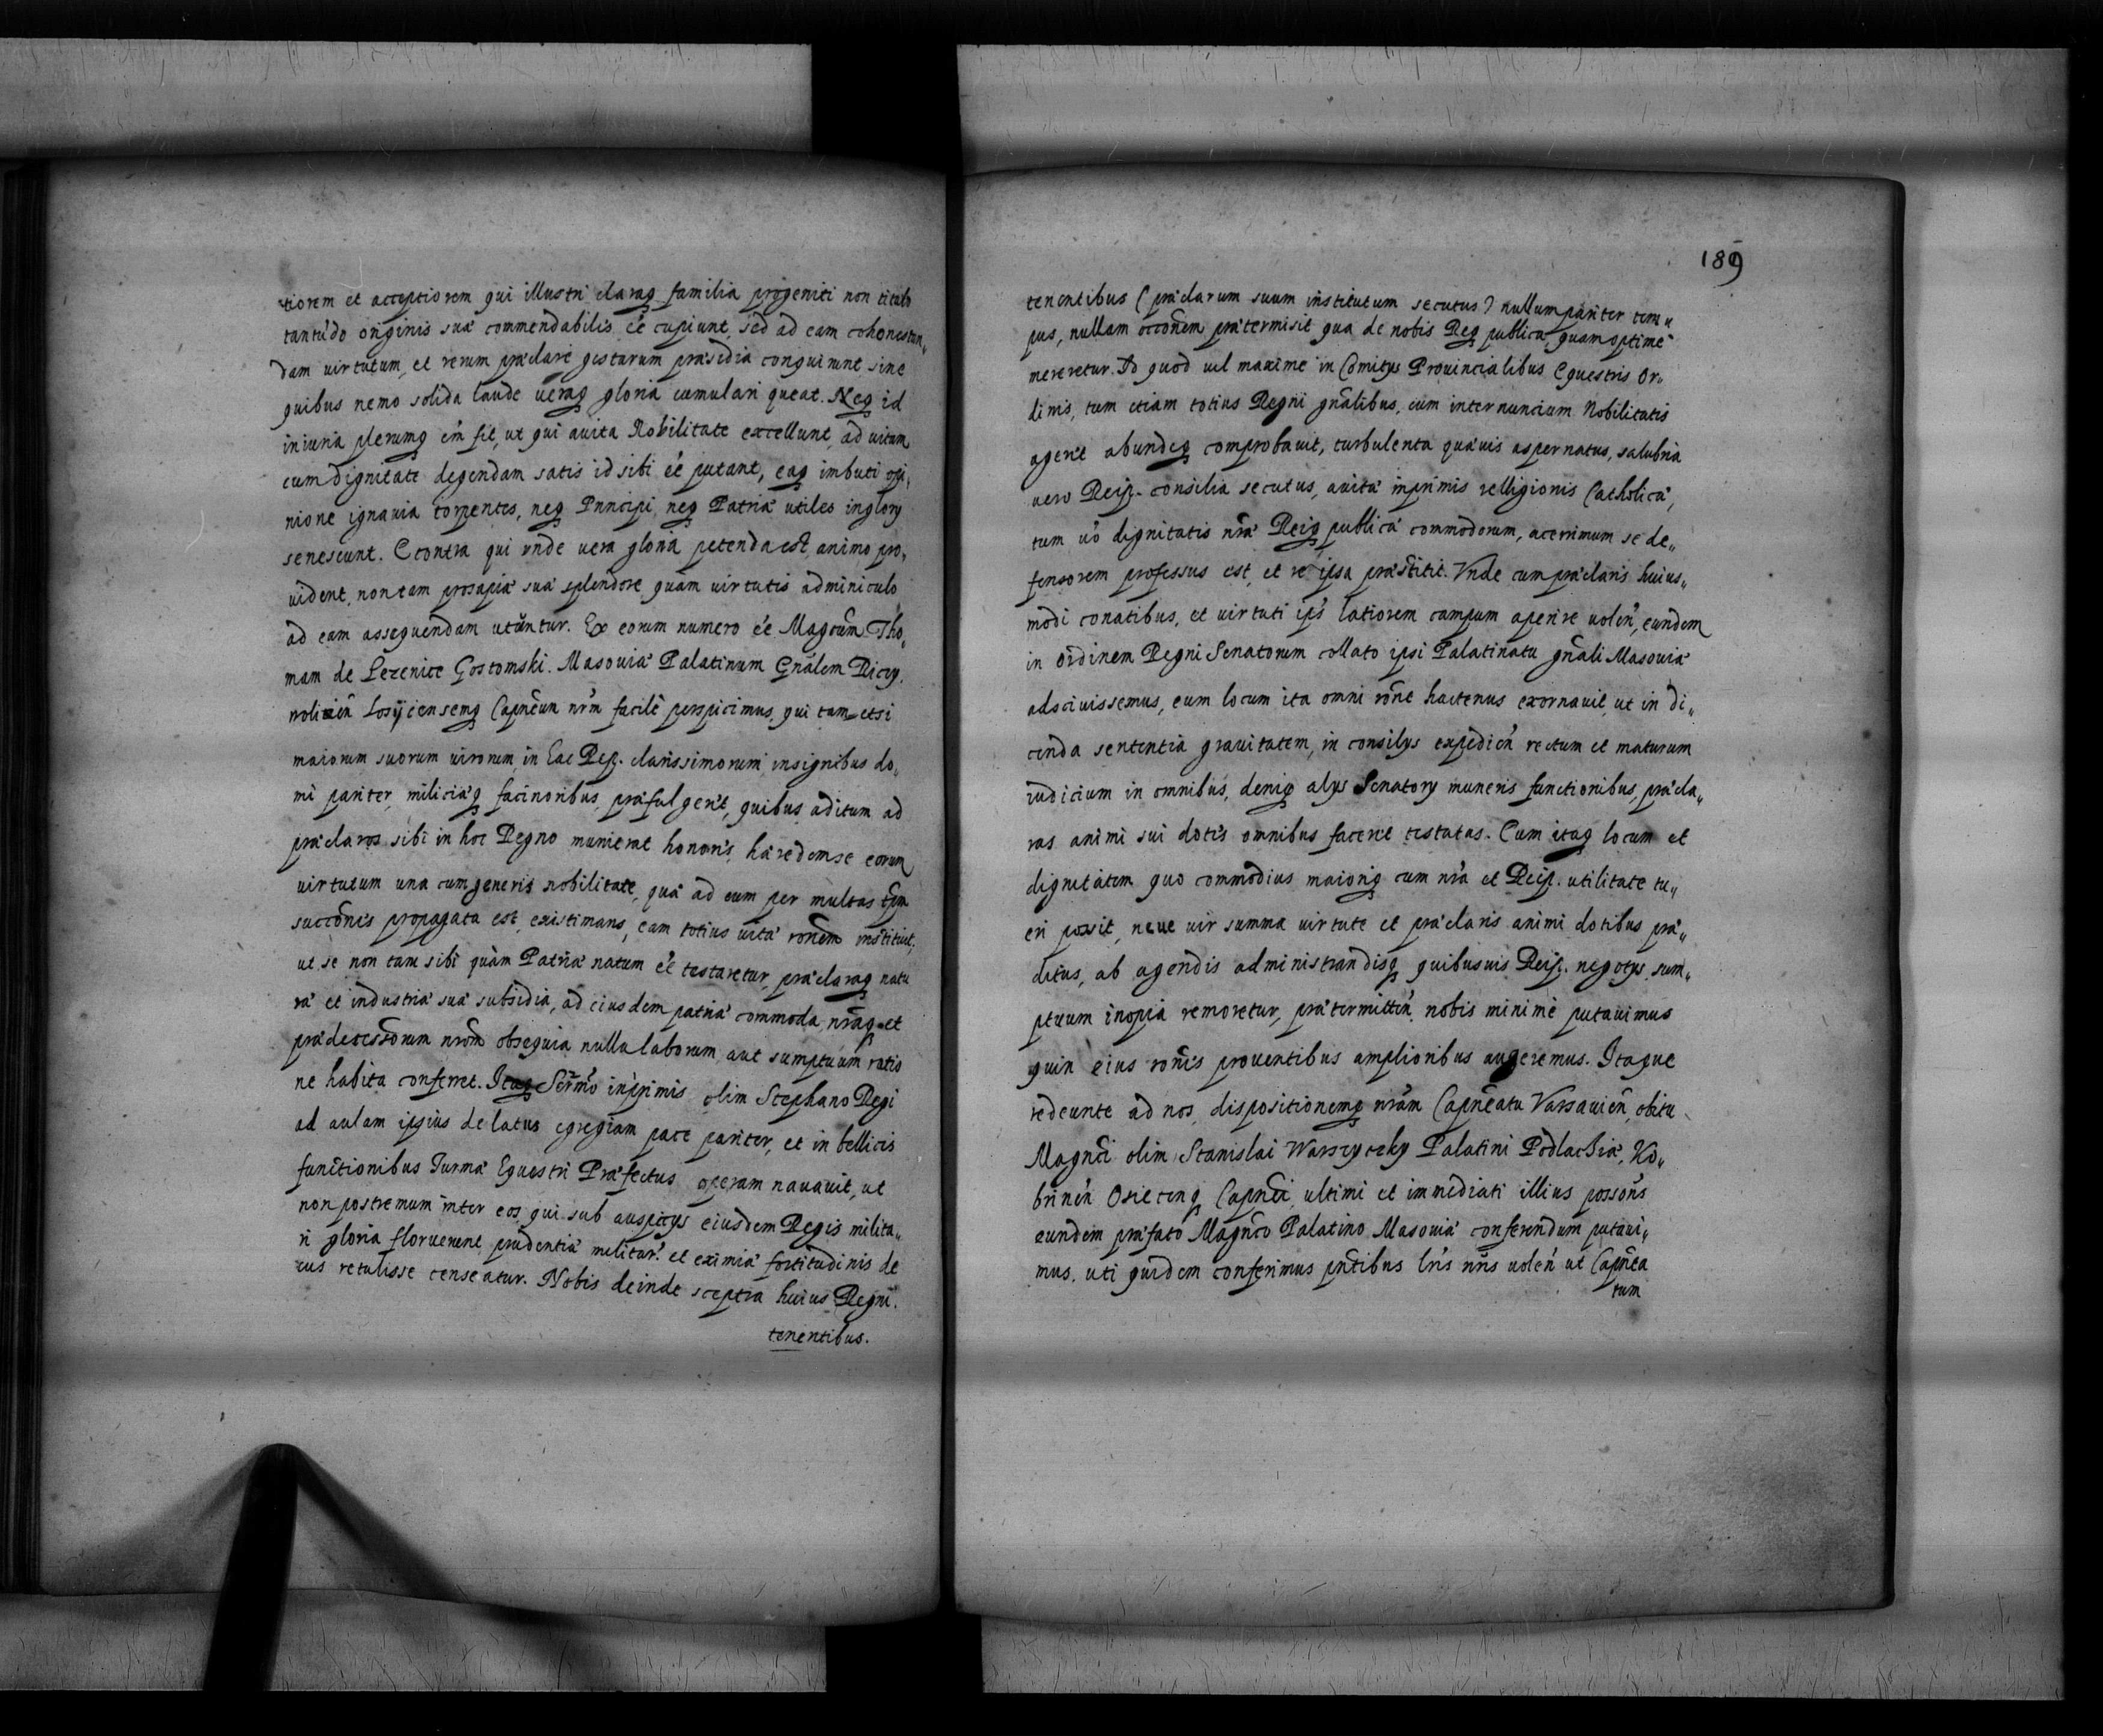 tiorem et acceptiorem qui illustri claraq familia progeniti non titulo
tantúdo originis suæ commendabilis eẽ cupiunt, sed ad eam cohonestan„
dam virtutum, et rerum præclarè gestarum præsidia conquirunt sine
quibus nemo solida laude veraq gloria cumulari queat. Neq id
iniuria plerumq em̃ fit, ut qui auita Nobilitate excellunt, ad uitam
cum dignitate degendam satis id sibi eẽ putant, eaq imbuti opi„
nione ignauia torpentes, neq Principi, neq Patriæ utiles inglory
senescunt. Econtra qui vnde uera gloria petenda est, animo pro„
uident, non tam prosapiæ suæ splendore quàm uirtutis adminiculo
ad eam assequendam utũntur. Ex eorum numero eẽ Magcũm Tho„
mam de Lezenice Gostomski. Masouiæ Palatinum Gnãlem Riczy.
wolieñ Losÿciensemq Capñeum nr̃m facilè perspicimus, qui tam etsi
maiorum suorum uirorum in hac Rep. clarissimorum insignibus do„
mi pariter, miliciæq facinoribus præfulgeret, quibus aditum ad
præclaros sibi in hoc Regno munierat honoris, hæredem se eorum
uirtutum una cum generis nobilitate, quæ ad eum per multas tpm
succõnis propagata est, existimans, eam totius uitæ rõnem instituit,
ut se non tam sibi quàm Patriæ natum eẽ testaretur, præclaraq natu
ræ et industriæ suæ subsidia, ad eiusdem patriæ commoda, nr̃aq et
prædecessorum nr̃orũ obsequia nulla laborum, aut sumptuum ratio
ne habita conferret. Itaq Serm̃o inprimis olim Stephano Regi
ad aulam ipsius delatus egregiam pace pariter, et in bellicis
functionibus Turmæ Equestri Præfectus operam nauauit, ut
non postremum inter eos, qui sub auspicys eiusdem Regis milita„
ri gloria floruerunt prudentiæ militar̃. et eximiæ fortitudinis de
cus retulisse censeatur. Nobis deinde sceptra huius Regni.
tenentibus.
189
tenentibus (præclarum suum institutum secutus) nullum pariter tem„
pus, nullam occõnem prætermisit qua de nobis Req publica, quam optimè
mereretur. Id quod uel maxime in Comitys Prouincialibus Equestris Or„
dinis, tum etiam totius Regni gnãlibus, cum internuncium Nobilitatis
ageret abundeq comprobauit, turbulenta quæuis aspernatus, salubria
uero Reip. consilia secutus, auitæ inprimis relligionis Catholicæ,
tum uõ dignitatis nr̃æ Reiq publicæ commodorum, acerrimum se de„
fensorem professus est, et re ipsa præstitit. Vnde cum præclaris huius„
modi conatibus, et uirtuti ips̃ latiorem campum aperire uoleñ, eundem
in ordinem Regni Senatorum collato ipsi Palatinatu gnãli Masouiæ
adsciuissemus, eum locum ita omni rõne hactenus exornauit, ut in di„
cenda sententia grauitatem, in consilys expedieñ rectum et maturum
iudicium in omnibus, deniq alys Senatory muneris functionibus, præcla„
ras animi sui dotes omnibus faceret testatas. Cum itaq locum et
dignitatem quo commodius maioriq cum nr̃a et Reip. utilitate tu„
eri possit, neue uir summa uirtute et præclaris animi dotibus præ„
ditus, ab agendis administrandisq quibusuis Reip. negotys, sum„
ptuum inopia remoretur, prætermitteñ nobis minimè putauimus
quin eius rõnes prouentibus amplioribus augeremus. Itaque
redeunte ad nos, dispositionemq nr̃am Capñeatu Varsauieñ, obitu
Magnci olim Stanislai Warszyczky Palatini Podlachiæ, Ko„
brineñ Osiecenq Capñei, ultimi et immediati illius possoris
eundem præfato Magnco Palatino Masouiæ conferendum putaui„
mus, uti quidem conferimus pñtibus lr̃is nr̃is uoleñ ut Capñea
tum